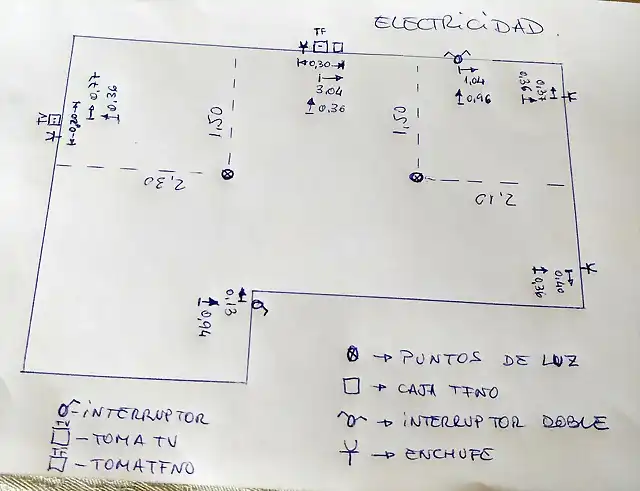 ELECTRICIDAD.
TF
0,30
3.04
0,36
1,04
0,96
0,37
0,36
0,47
0,36
0,20
TV
1,50
1,50
2,30
2,10
0,40
0,36
0,13
0,94
PUNTOS DE LUZ
CAJA TFNO
INTERRUPTOR DOBLE
ENCHUFE
INTERRUPTOR
TV - TOMA TV
TF - TOMA TFNO